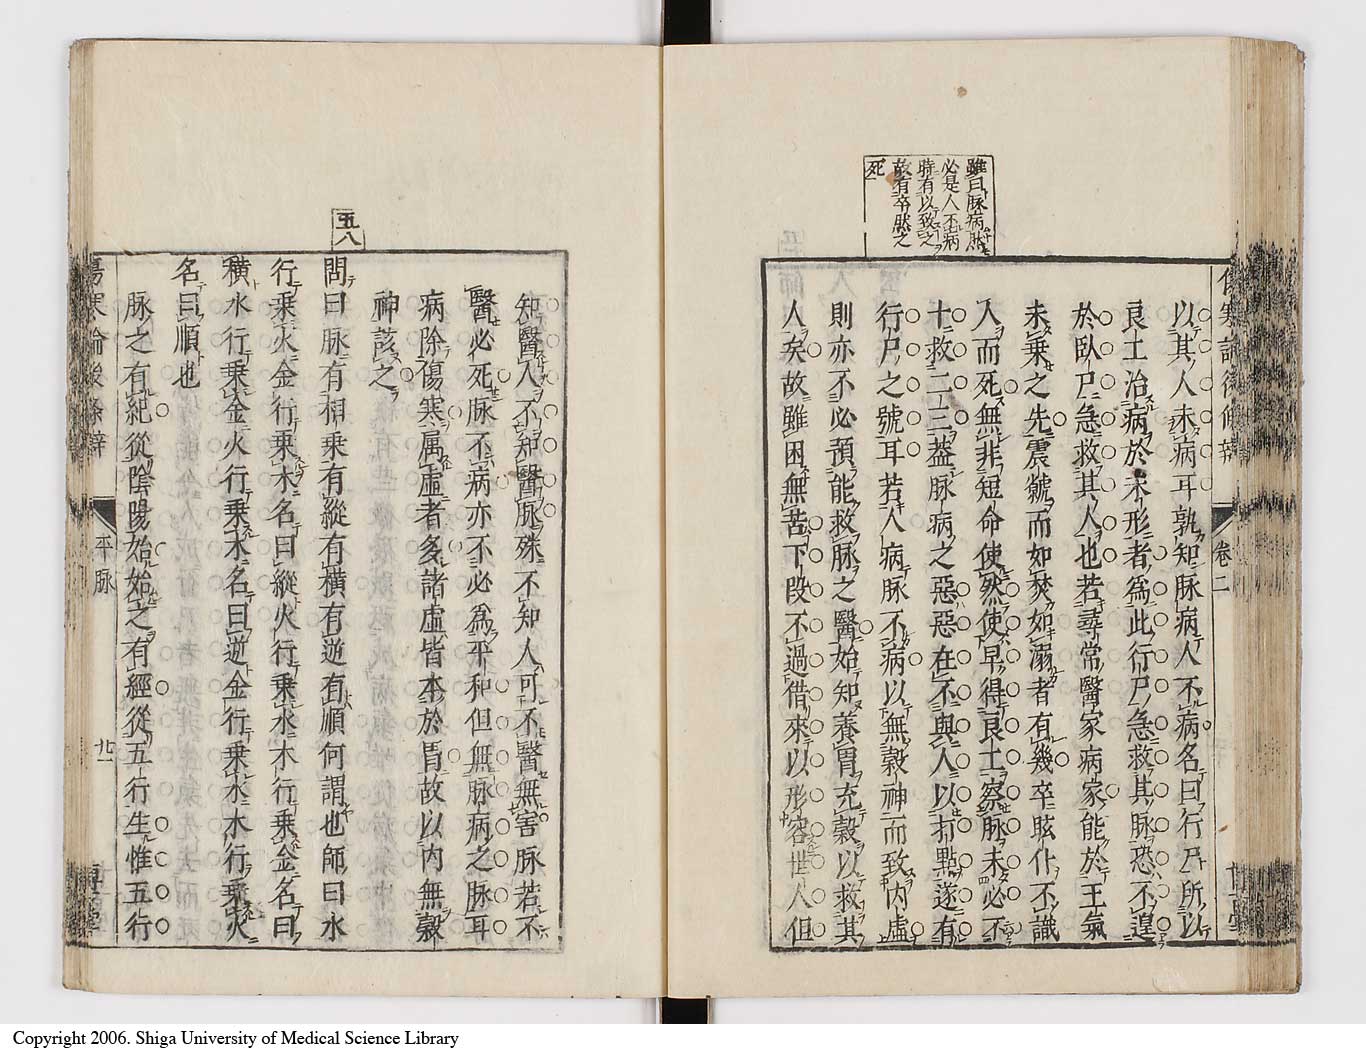 雖曰脉病然
必是人不病
時有以致之
故有卒然之
死
傷寒論後條辨
卷二
以其人未病耳孰知脉病人不病名曰行尸所以
良工治病於未形者爲此行尸急救其脉恐不遑
於臥尸急救其人也若尋常醫家病家能於王氣
未乗之先震虩而如焚如溺者有幾卒眩仆不識
入而死無非短命使然使早得良工察脉未必不
十救二三蓋脉病之惡惡在不與人以打點遂有
行尸之號耳若人病脉不病以無穀神而致内虚
則亦不必預能救脉之醫始知養胃充穀以救其
人矣故雖困無苦下段不過借來以形容世人但
知醫人不知醫脉殊不知人可不醫無害脉若不
醫必死脉不病亦不必爲平和但無脉病之脉耳
病除傷寒属虚者多諸虚皆本於胃故以内無穀
神該之
五八
問曰脉有相乗有縱有横有逆有順何謂也師曰水
行乗火金行乗木名曰縱火行乗水木行乗金名曰
横水行乗金火行乗木名曰逆金行乗水木行乗火
名曰順也
脉之有紀從陰陽始始之有經從五行生惟五行
傷寒論後條辨
平脉
廿一